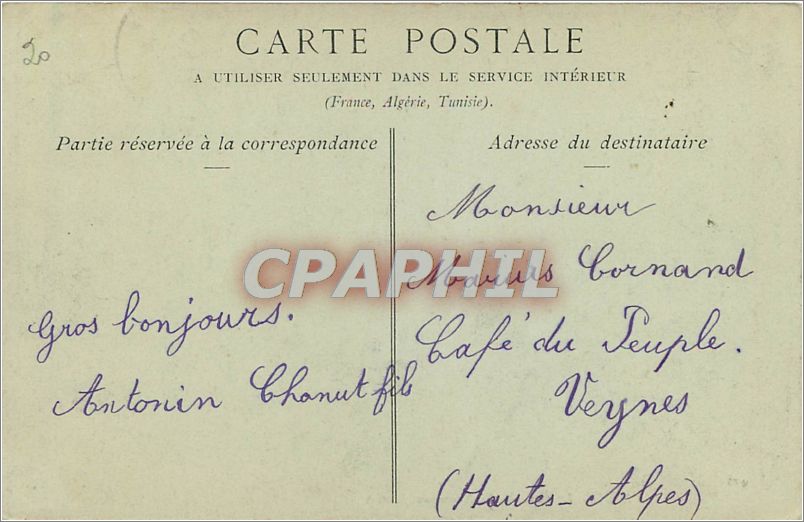 20
CARTE POSTALE
A UTILISER SEULEMENT DANS LE SERVICE INTÉRIEUR
(France, Algérie, Tunisie).
Partie réservée à la correspondance
Gros bonjours.
Antonin Chanut fils
Adresse du destinataire
Monsieur
Marius Cornand
Café du Peuple.
Veynes
(Hautes-Alpes)
CPAPHIL